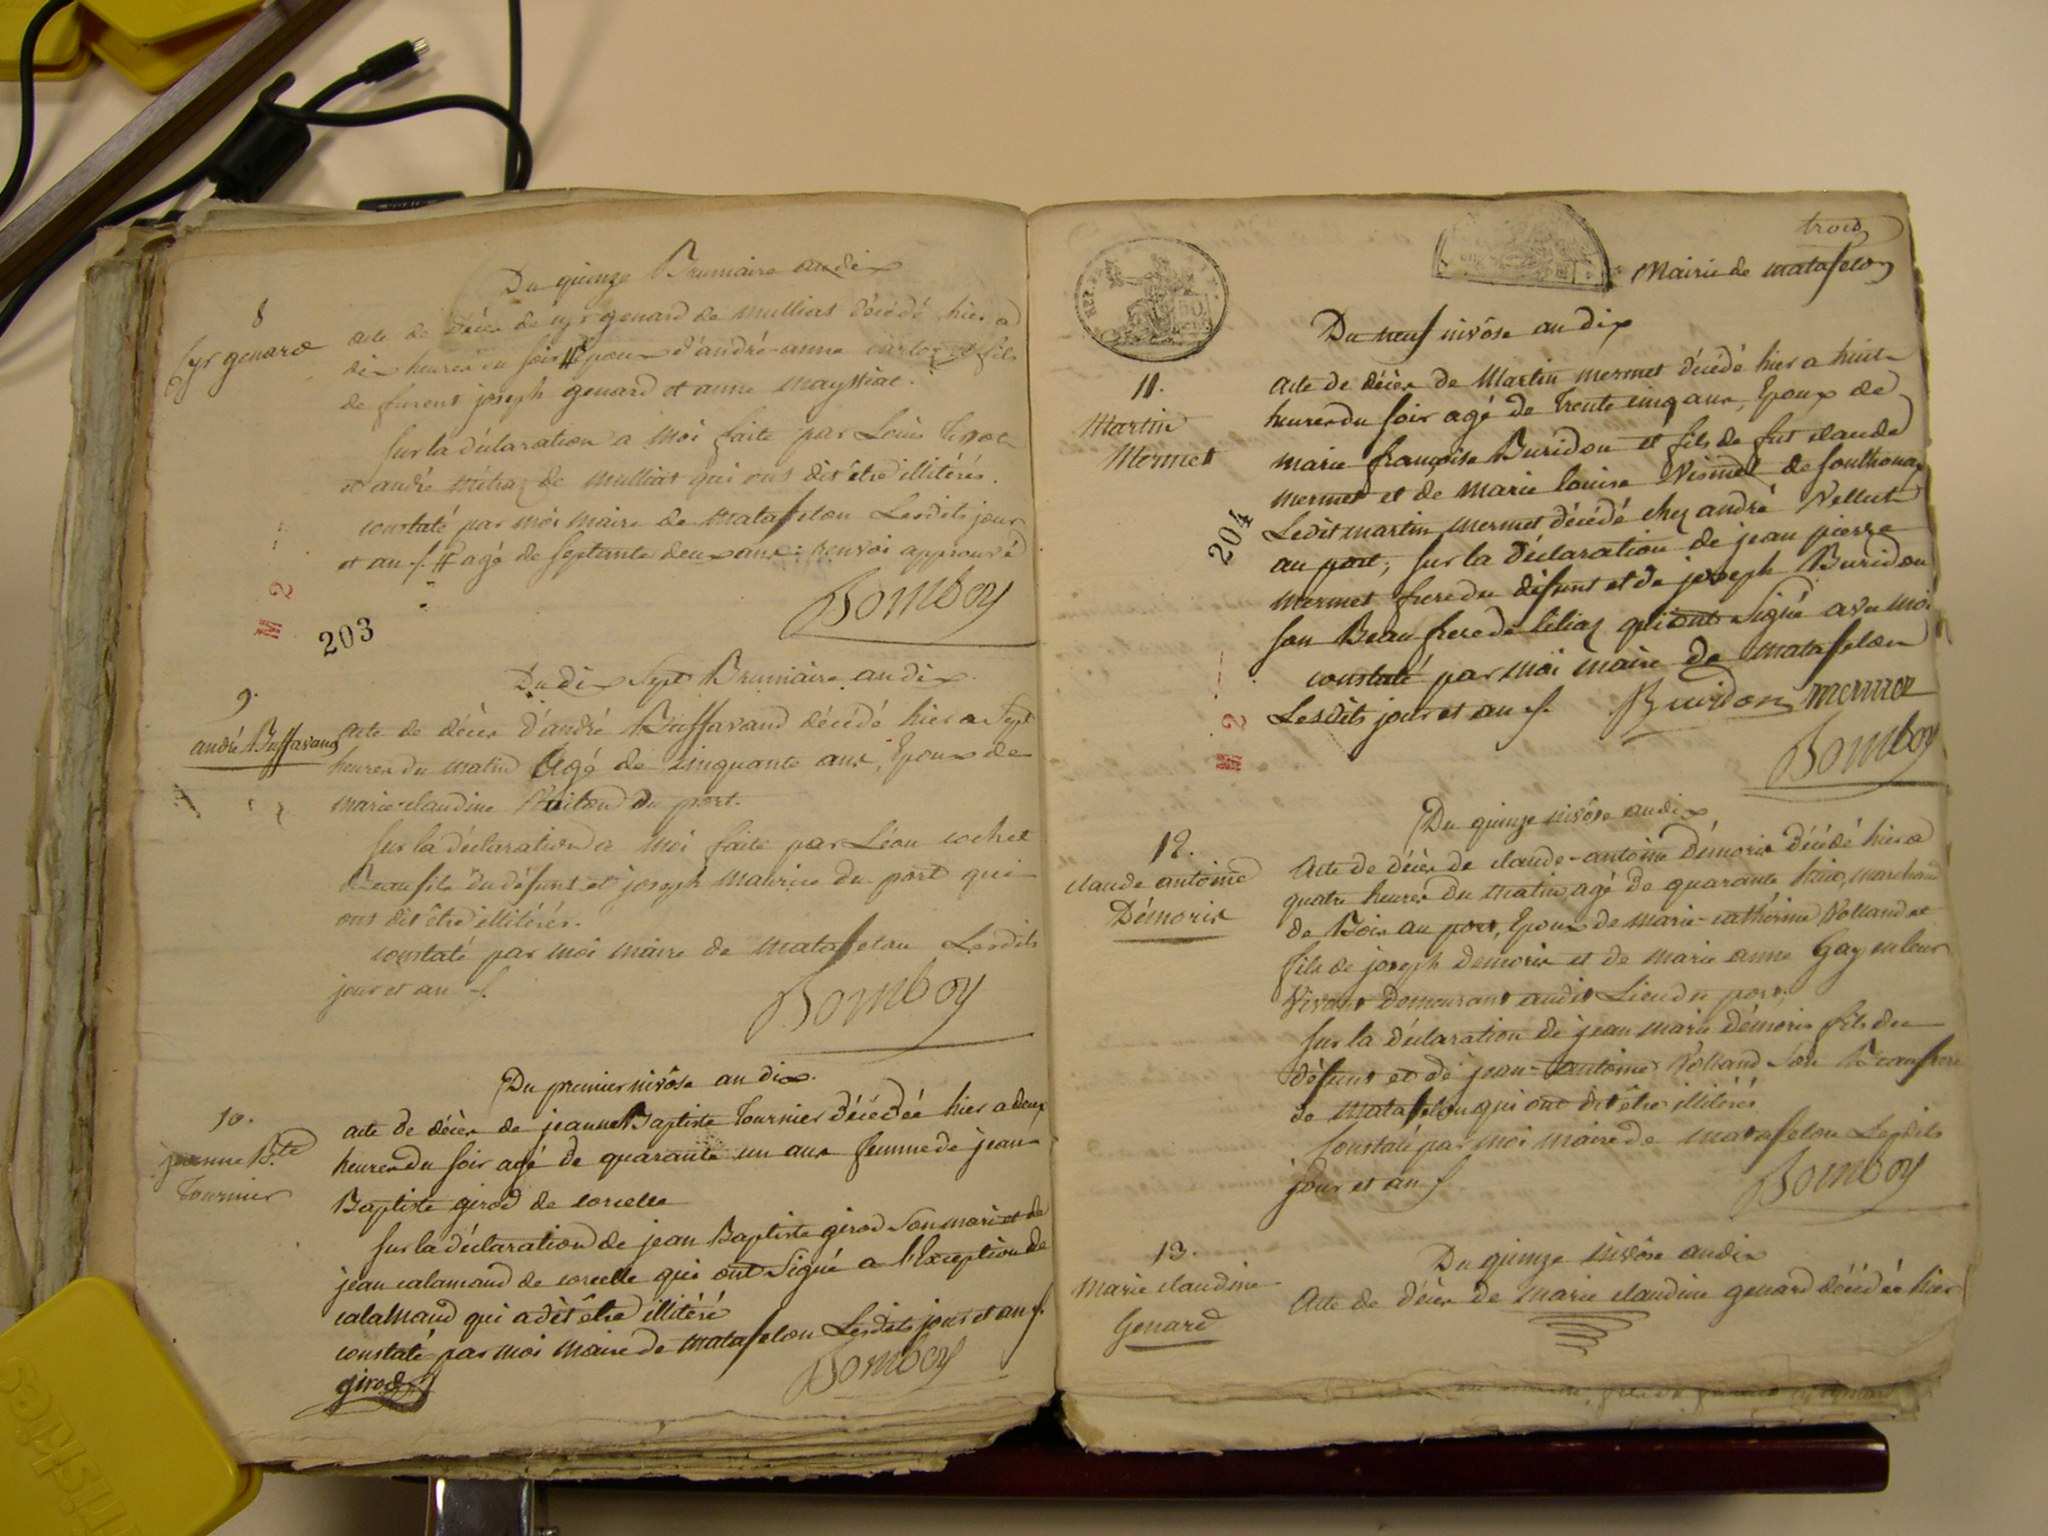 Du quinze Brumaire an dix
8
Cyr genard
acte de décès de cyr genard de mulliat décédé hier a
dix heures du soir # époux d'andré-anne et fils
de furent joseph genard et anne mayssiat.
sur la déclaration a moi faite par Louis
et andré de mulliat qui ont dit être illitérés.
constaté par moi maire de matafelon Lesdits jour
et an ./. # agé de septante deux ans : renvoi approuvé
Bomboy
203
Du dix sept Brumaire an dix.
9.
andré Buffavand
acte de décès d'andré Buffavand décédé hier a sept
heures du matin Agé de cinquante ans, Epoux de
marie-claudine du port.
sur la déclaration a moi faite par Léon cochet
Beaufils du défunt et joseph maurice du port qui
ont dit être illitérés.
constaté par moi maire de matafelon Lesdits
jour et an ./.
Bomboy
Du premier nivôse an dix.
10.
jeanne Bte
Tournier
acte de décès de jeanne Baptiste Tournier décédée hier a deux
heures du soir agé de quarante un ans femme de jean
Baptiste girod de corcelle
sur la déclaration de jean Baptiste girod son mari et de
jean calamand de corcelle qui ont signé a l'Exception de
calamand qui a dit être illitéré
constaté par moi maire de matafelon Lesdits jour et an ./.
girod
Bomboy
trois
Mairie de matafelon
REP. FRA.
50
Du neuf nivôse an dix
11.
Martin
Mermet
204
acte de décès de Martin mermet décédé hier a huit
heures du soir agé de Trente cinq ans, Epoux de
marie françoise Buridon et fils de fut claude
mermet et de marie louise de
Ledit martin mermet décédé chez andré Vellut
au port, sur la déclaration de jean pierre
mermet frere du défunt et de joseph Buridon
son Beaufrere de qui ont signé avec moi
constaté par moi maire de matafelon
Lesdits jour et an ./. Buridon mermet
Bomboy
Du quinze nivôse an dix
12.
claude antoine
Démoris
Acte de décès de claude-antoine Démoris décédé hier a
quatre heures du matin, agé de quarante huit, marchand
de Bois au port, Epoux de marie-cathérine Volland et
fils de joseph demoris et de marie anne Gay en leur
Vivant Demeurant audit Lieu du port.
sur la déclaration de jean marie démoris fils du
défunt et de jean-antoine Volland son Beaufrere
de matafelon qui ont dit être illitérés
Constaté par moi maire de matafelon Lesdits
jour et an ./.
Bomboy
Du quinze nivôse an dix
13.
Marie claudine
Genard
Acte de décès de marie claudine genard décédée hier